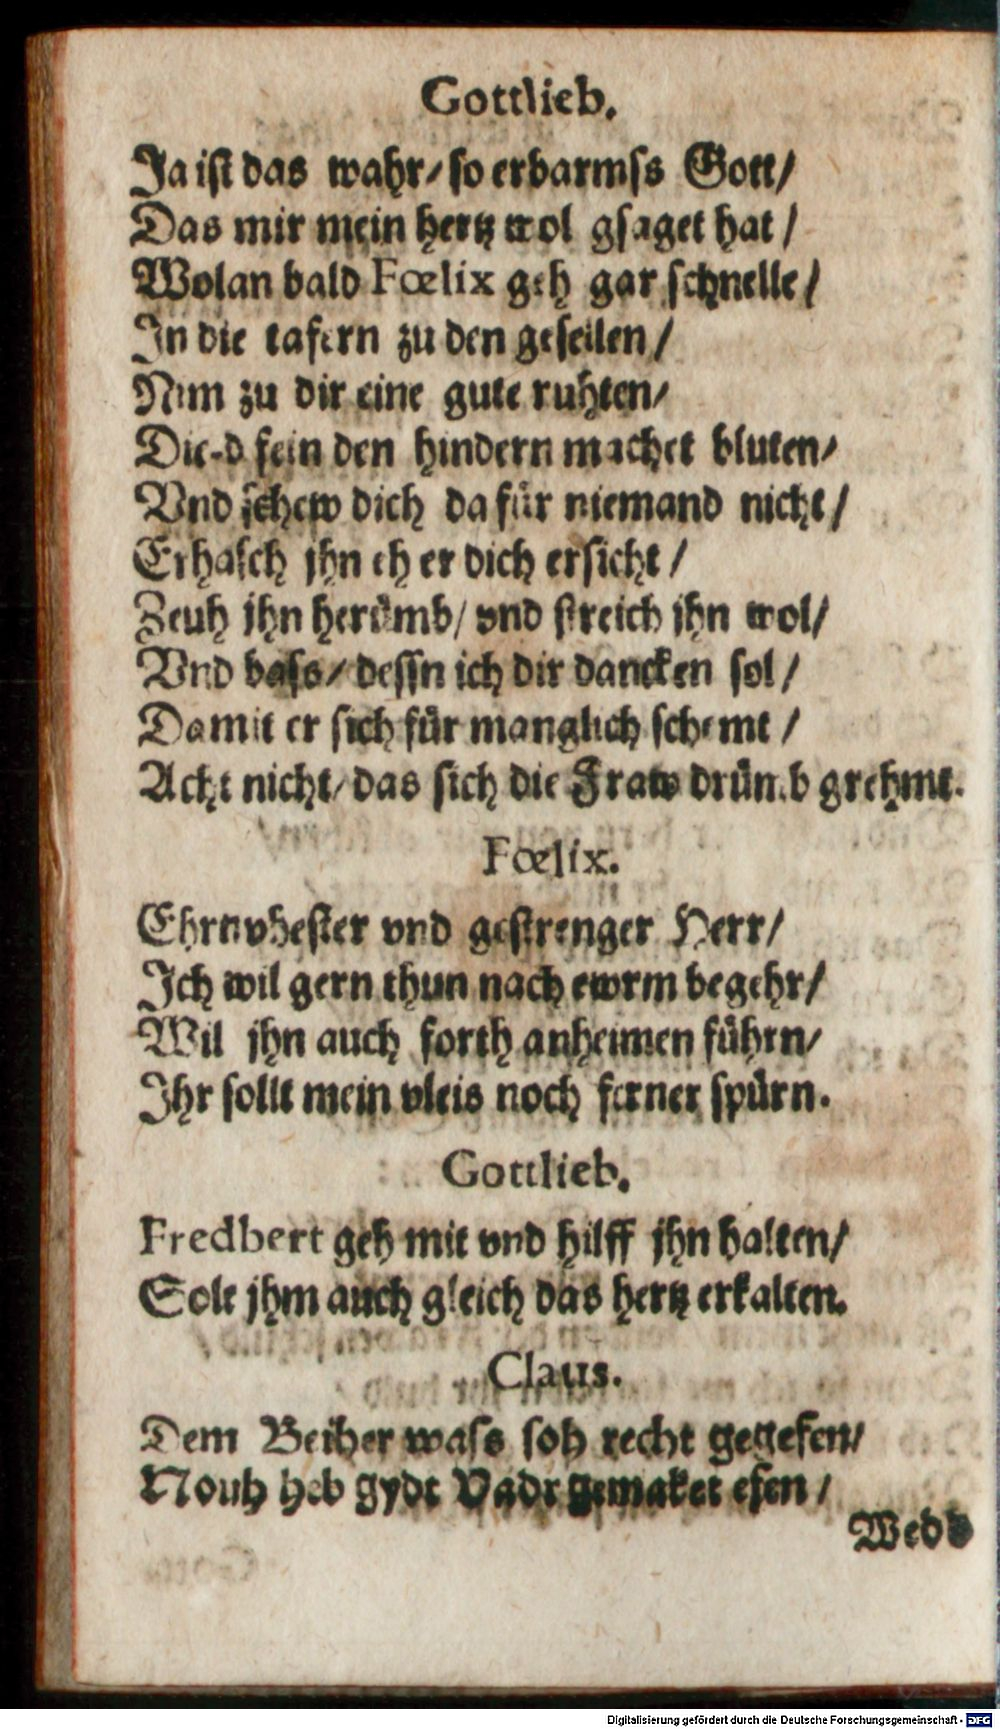 Gottlieb.
Ja ist das wahr/ so erbarmss Gott/
Das mir mein hertz wol gsaget hat/
Wolan bald Fœlix geh gar schnelle/
In die tafern zu den gesellen/
Nim zu dir eine gute ruhten/
Die-d fein den hindern machet bluten/
Vnd schew dich da für niemand nicht/
Erhasch jhn eh er dich ersicht/
Zeuh jhn herümb/ vnd streich jhn wol/
Vnd bass/ dessn ich dir dancken sol/
Damit er sich für manglich schemt/
Acht nicht/ das sich die Fraw drümb grehmt.
Fœlix.
Ehrnvhester vnd gestrenger Herr/
Ich wil gern thun nach ewrm begehr/
Wil jhn auch forth anheimen führn/
Ihr sollt mein vleis noch ferner spürn.
Gottlieb.
Fredbert geh mit vnd hilff jhn halten/
Solt jhm auch gleich das hertz erkalten.
Claus.
Dem Beiher wass soh recht gegefen/
Nouh heb gydt Vadr gemaket efen/
Wedd
Digitalisierung gefördert durch die Deutsche Forschungsgemeinschaft - DFG